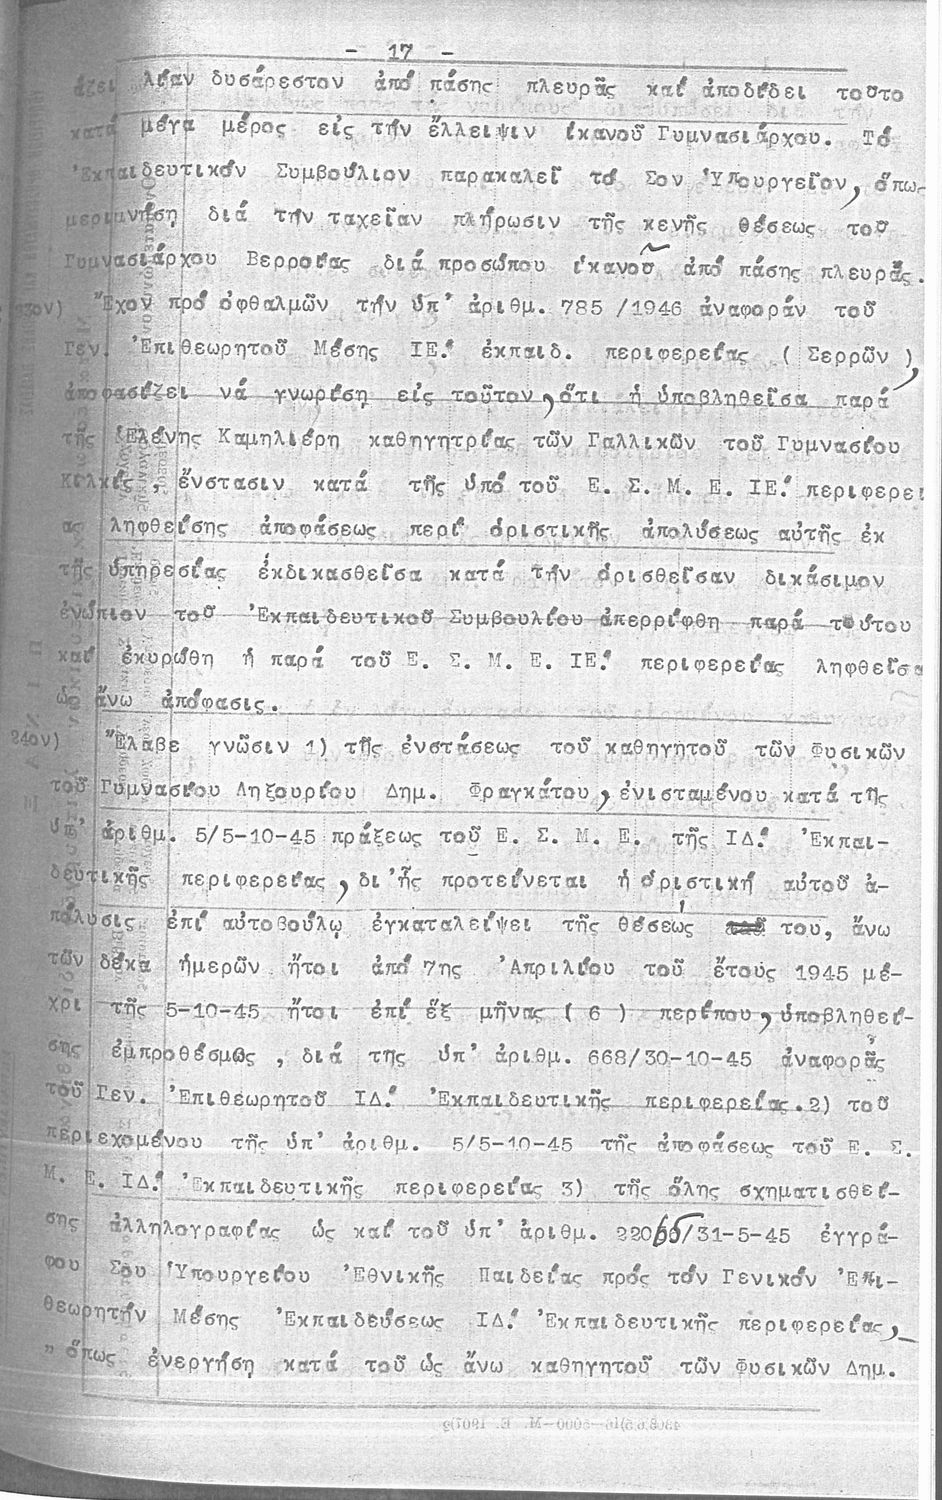 - 17 -
άζει λίαν δυσάρεστον ἀπό πάσης πλευρᾶς καί ἀποδίδει τοῦτο
κατά μέγα μέρος εἰς τήν ἔλλειψιν ἱκανοῦ Γυμνασιάρχου. Τό
Ἐκπαιδευτικόν Συμβούλιον παρακαλεῖ τό Σον Ὑπουργεῖον, ὅπως
μεριμνήση διά τήν ταχεῖαν πλήρωσιν τῆς κενῆς θέσεως τοῦ
Γυμνασιάρχου Βερροίας διά προσώπου ἱκανοῦ ἀπό πάσης πλευρᾶς.
23ον) Ἔχον πρό ὀφθαλμῶν τήν ὑπ' ἀριθμ. 785 /1946 ἀναφοράν τοῦ
Γεν. Ἐπιθεωρητοῦ Μέσης ΙΕ! ἐκπαιδ. περιφερείας ( Σερρῶν ),
ἀποφασίζει νά γνωρίση εἰς τοῦτον, ὅτι ἡ ὑποβληθεῖσα παρά
τῆς Ἑλένης Καμηλιέρη καθηγητρίας τῶν Γαλλικῶν τοῦ Γυμνασίου
Κιλκίς , ἔνστασιν κατά τῆς ὑπό τοῦ Ε. Σ. Μ. Ε. ΙΕ! περιφερεί
ας ληφθείσης ἀποφάσεως περί ὁριστικῆς ἀπολύσεως αὐτῆς ἐκ
τῆς ὑπηρεσίας ἐκδικασθεῖσα κατά τήν ὁρισθεῖσαν δικάσιμον
ἐνώπιον τοῦ Ἐκπαιδευτικοῦ Συμβουλίου ἀπερρίφθη παρά τούτου
καί ἐκυρώθη ἡ παρά τοῦ Ε. Σ. Μ. Ε. ΙΕ! περιφερείας ληφθεῖσα
ὡς ἄνω ἀπόφασις.
24ον) Ἔλαβε γνῶσιν 1) τῆς ἐνστάσεως τοῦ καθηγητοῦ τῶν Φυσικῶν
τοῦ Γυμνασίου Ληξουρίου Δημ. Φραγκάτου, ἐνισταμένου κατά τῆς
ὑπ' ἀριθμ. 5/5-10-45 πράξεως τοῦ Ε. Σ. Μ. Ε. τῆς ΙΔ! Ἐκπαι-
δευτικῆς περιφερείας, δι'ἧς προτείνεται ἡ ὁριστική αὐτοῦ ἀ-
πόλυσις ἐπί αὐτοβούλῳ ἐγκαταλείψει τῆς θέσεώς του, ἄνω
τῶν δέκα ἡμερῶν ἤτοι ἀπό 7ης Ἀπριλίου τοῦ ἔτους 1945 μέ-
χρι τῆς 5-10-45 ἤτοι ἐπί ἕξ μῆνας ( 6 ) περίπου, ὑποβληθεί-
σης ἐμπροθέσμως , διά της ὑπ' ἀριθμ. 668/30-10-45 ἀναφορᾶς
τοῦ Γεν. Ἐπιθεωρητοῦ ΙΔ! Ἐκπαιδευτικῆς περιφερείας.2) τοῦ
περιεχομένου τῆς ὑπ' ἀριθμ. 5/5-10-45 τῆς ἀποφάσεως τοῦ Ε. Σ.
Μ. Ε. ΙΔ! Ἐκπαιδευτικῆς περιφερείας 3) τῆς ὅλης σχηματισθεί-
σης ἀλληλογραφίας ὡς καί τοῦ ὑπ' ἀριθμ. 22066/31-5-45 ἐγγρά-
φου Σου Ὑπουργείου Ἐθνικῆς Παιδείας πρός τόν Γενικόν Ἐπι-
θεωρητήν Μέσης Ἐκπαιδεύσεως ΙΔ! Ἐκπαιδευτικῆς περιφερείας,
" ὅπως ἐνεργήση κατά τοῦ ὡς ἄνω καθηγητοῦ τῶν Φυσικῶν Δημ.